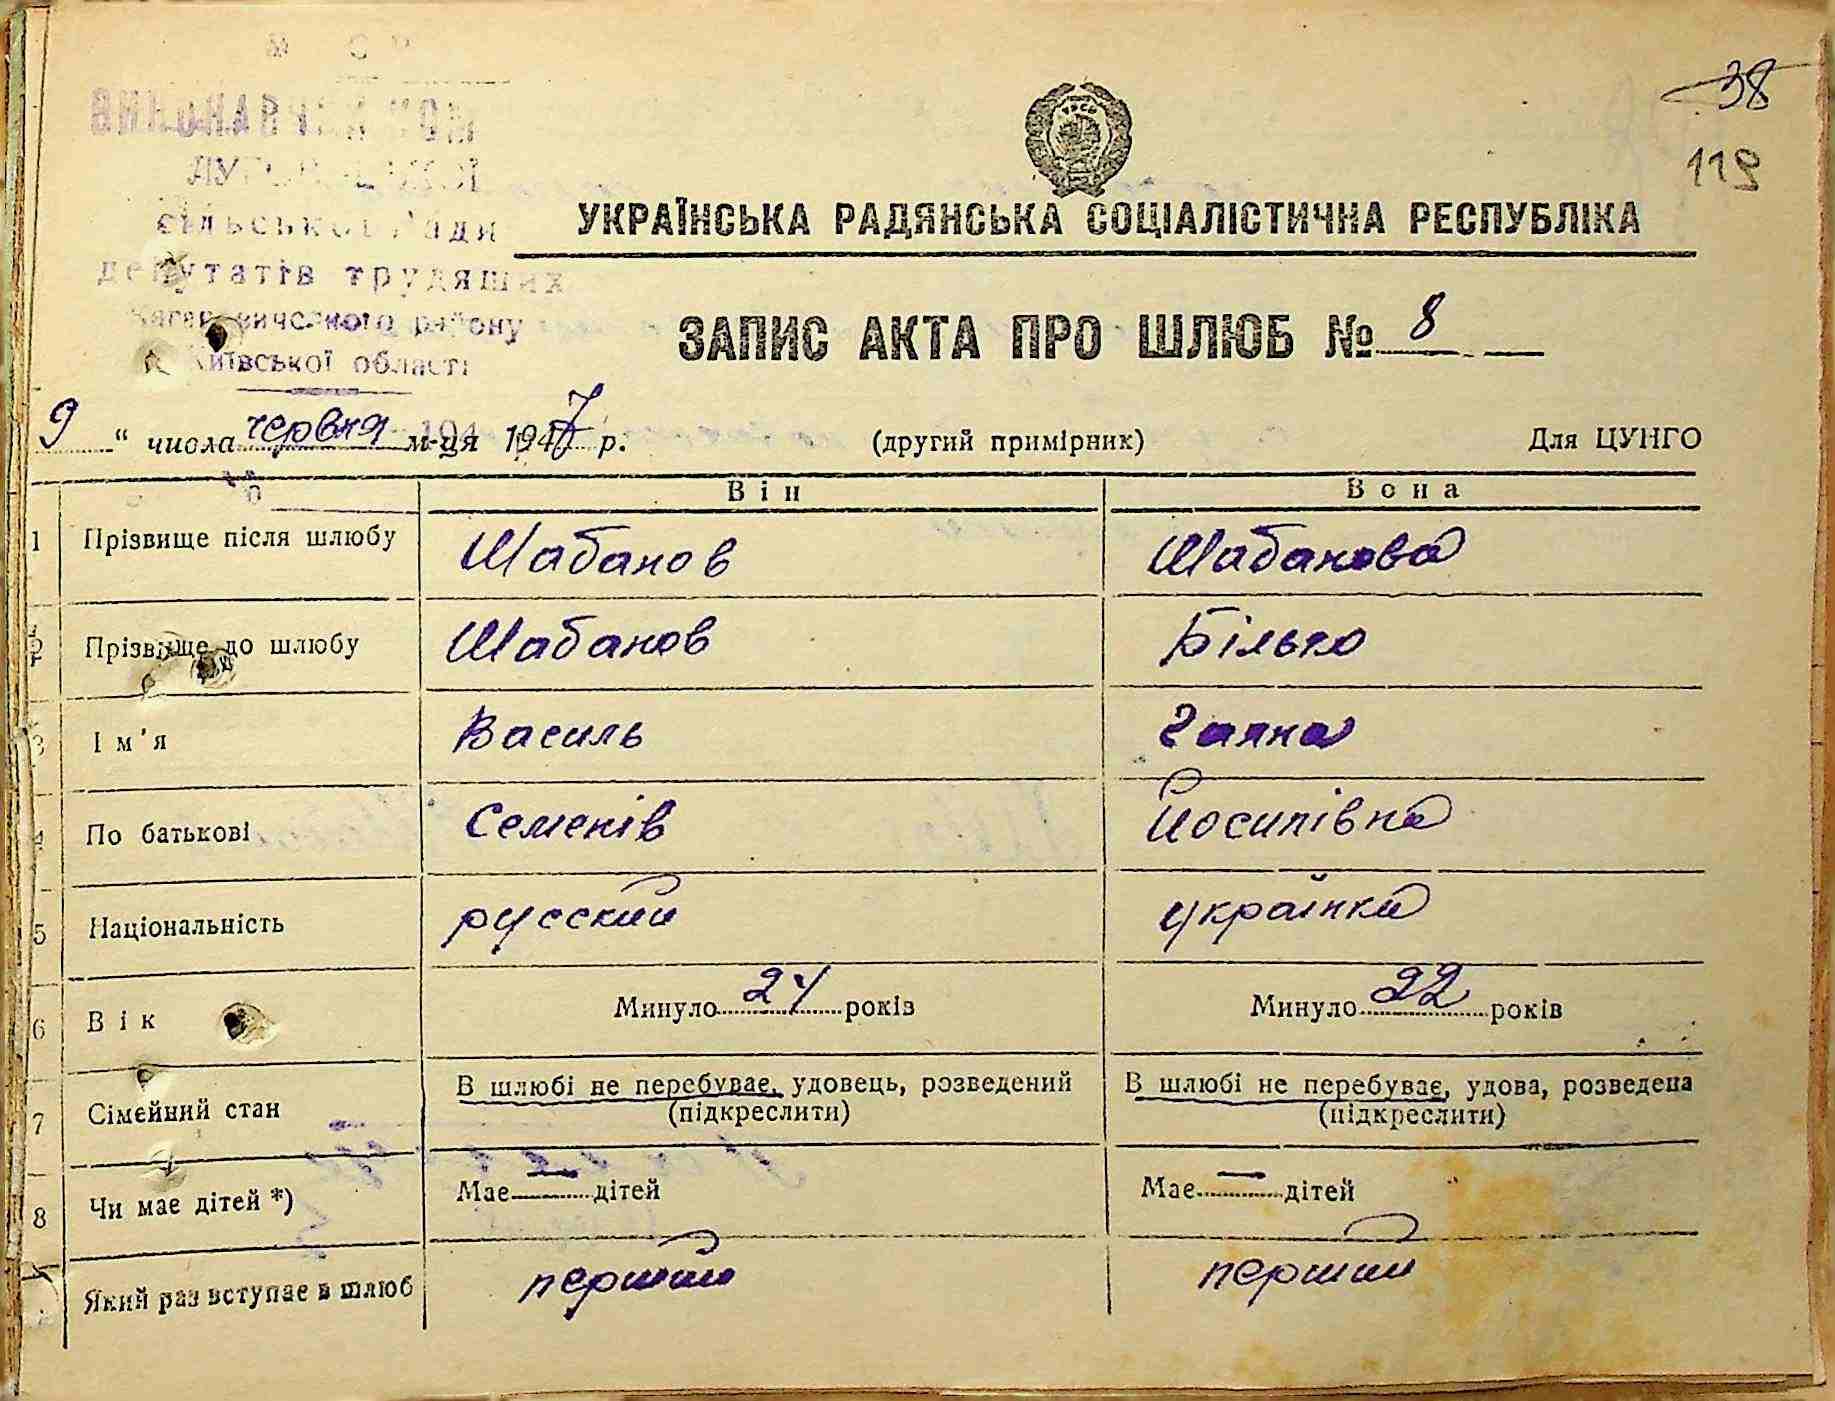 38
119
сільської Ради
депутатів трудящих
району
Київської області
УКРАЇНСЬКА РАДЯНСЬКА СОЦІАЛІСТИЧНА РЕСПУБЛІКА
ЗАПИС АКТА ПРО ШЛЮБ № 8
9 " числа червня м-ця 1947 р. (другий примірник) Для ЦУНГО
Він Вона
1 Прізвище після шлюбу Шабанов Шабанова
2 Прізвище до шлюбу Шабанов Білько
3 Ім'я Василь Ганна
4 По батькові Семенів Йосипівна
5 Національність русский українка
6 Вік Минуло 24 років Минуло 22 років
7 Сімейний стан В шлюбі не перебуває, удовець, розведений (підкреслити) В шлюбі не перебуває, удова, розведена (підкреслити)
8 Чи має дітей *) Має — дітей Має — дітей
Який раз вступає в шлюб перший перший